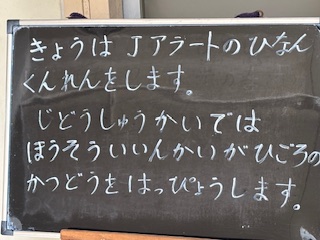 きょうは Jアラートのひなん
くんれんをします。
じどうしゅうかいでは
ほうそういいんかいがひごろの
かつどうをはっぴょうします。